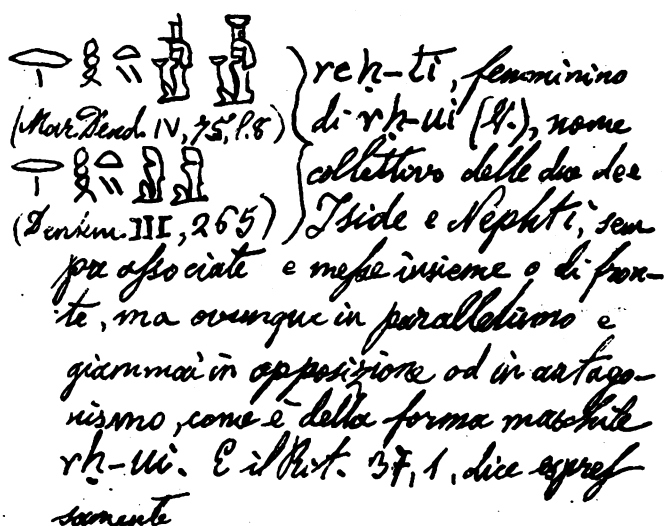 reḥ-ti, femminino
(Mar. Dend. IV, 75, l. 8) di rḥ-ui (V.), nome
collettivo delle due dee
(Denkm. III, 265) Iside e Nephti, sem
pre associate e messe insieme o di fron-
te, ma ovunque in parallelismo e
giammai in opposizione od in antago-
nismo, come è della forma maschile
rḥ-ui. E il Rit. 37, 1, dice espres
samente